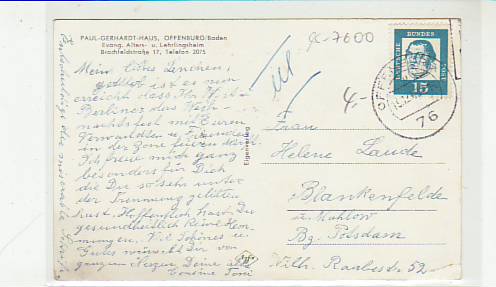 PAUL-GERHARDT-HAUS, OFFENBURG/Baden
Evang. Alters- u. Lehrlingsheim
Brachfeldstraße 17, Telefon 2075
Mein liebes Lenchen,
gottlob ist es nun
erreicht dass Ihr West-
Berliner das Weih-
nachtsfest mit Euren
Verwandten u. Freunden
in der Zone feiern
Ich freue mich ganz
besonders für Dich
die Du so sehr unter
der Trennung gelitten
hast. Hoffentlich hast Du
gesundheitlich keine Hem-
mungen. Viel Schönes u.
Gutes wünscht Dir von
ganzem Herzen Deine alte
Toni
Entschuldige die miserable
Eigenverlag
gc-7600
4,-
DEUTSCHE BUNDESPOST
15
OFFENBURG
76
Frau
Helene Laude
Blankenfelde
ü. Mahlow
Bz. Potsdam
Wilh. Raabestr. 52